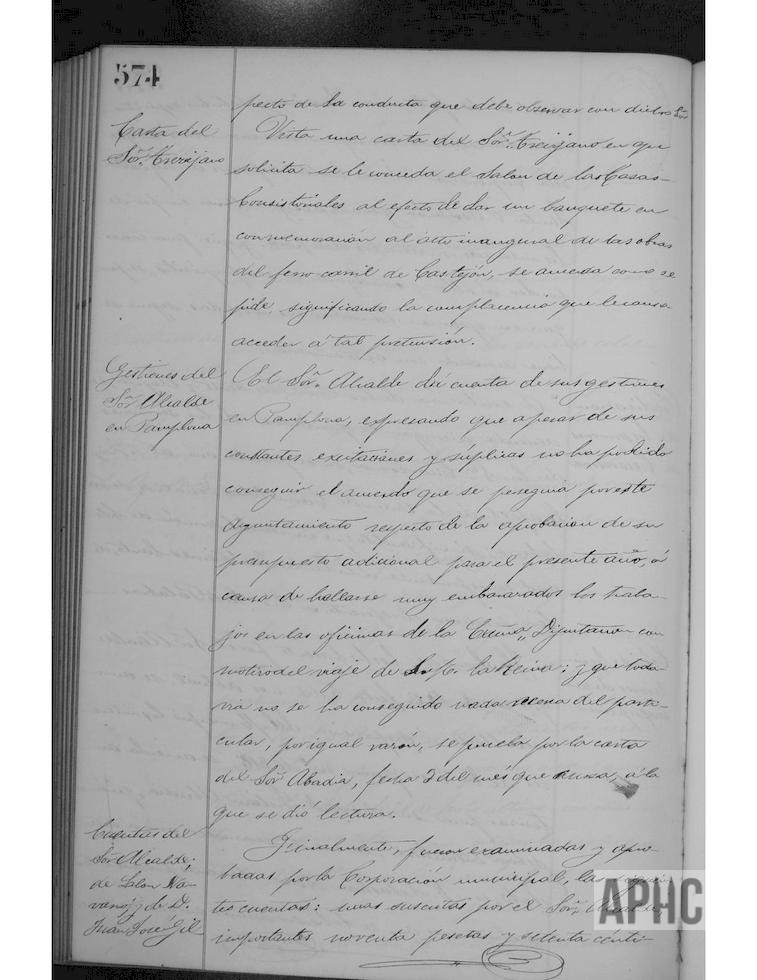 574
pecto de la conducta que debe observar con dicho Sor
Carta del
Sor. Trevijano
Vista una carta del Sor. Trevijano en que
solicita se le conceda el Salon de las Casas-
Consistoriales al efecto de dar un banquete en
conmemoración al acto inaugural de las obras
del ferro-carril de Castejón, se acuerda como se
pide, significando la complacencia que le causa
acceder á tal pretensión.
Gestiones del
Sor Alcalde
en Pamplona
El Sor. Alcalde dió cuenta de sus gestiones
en Pamplona, expresando que apesar de sus
constantes excitaciones y súplicas no ha podido
conseguir el acuerdo que se perseguia por este
Ayuntamiento respecto de la aprobacion de su
presupuesto adicional para el presente año, á
causa de hallarse muy embarazados los traba-
jos en las oficinas de la Excma. Diputacion con
motivo del viaje de S. M. la Reina: y que toda-
via no se ha conseguido nada acerca del parti-
cular, por igual razón, se prueba por la carta
del Sor Abadia, fecha 3 del mes que cursa, á la
que se dió lectura.
Cuentas del
Sor Alcalde;
de Na-
y de D.
Juan José Gil
Finalmente, fueron examinadas y apro-
badas por la Corporacion municipal, las siguien-
tes cuentas: unas suscritas por el Sor. Alcalde
importantes noventa pesetas y setenta cénti-
APHC